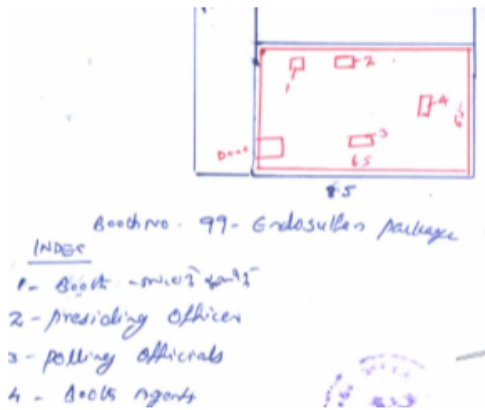 2
1
4
6
3
Door
6.5
8.5
Booth No. 99 - Endosulfan package
INDEX
1 - Booth -
2 - presiding officer
3 - polling officials
4 - Booth Agents